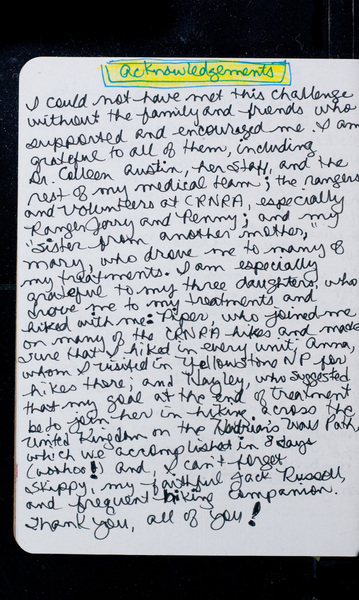 acknowledgements
I could not have met this challenge
without the family and friends who
supported and encouraged me. I am
grateful to all of them, including
Dr. Colleen Austin, her staff, and the
rest of my medical team; the rangers
and volunteers at CRNRA, especially
Ranger Jerry and Penny; and my
"sister from another mother,"
Mary, who drove me to many of
my treatments. I am especially
grateful to my three daughters, who
drove me to my treatments and
hiked with me: Piper, who joined me
on many of the CRNRA hikes and made
sure that I hiked in every unit, Anna,
whom I visited in Yellowstone NP for
hikes there; and Hayley, who suggested
that my goal at the end of treatment
be to join her in hiking across the
United Kingdom on the Hadrian's Wall Path
which we accomplished in 8 days
(woohoo!) and, I can't forget
Skippy, my faithful Jack Russell,
and frequent hiking companion.
Thank you, all of you!